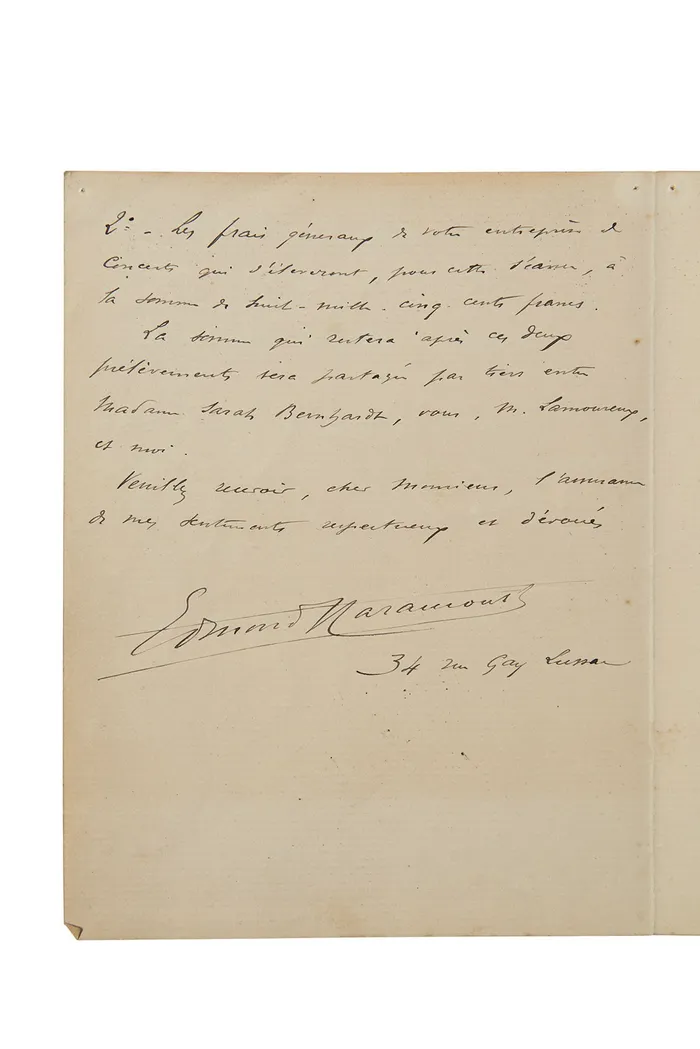 2º - Les frais généraux de votre entreprise de
Concerts qui s'élèveront, pour cette séance, à
la somme de huit-mille-cinq cents francs.
La somme qui restera après ces deux
prélèvements sera partagée par tiers entre
Madame Sarah Bernhardt, vous, M. Lamoureux,
et moi.
Veuillez recevoir, cher Monsieur, l'assurance
de mes sentiments respectueux et dévoués
Edmond Haraucourt
34 rue Gay Lussac